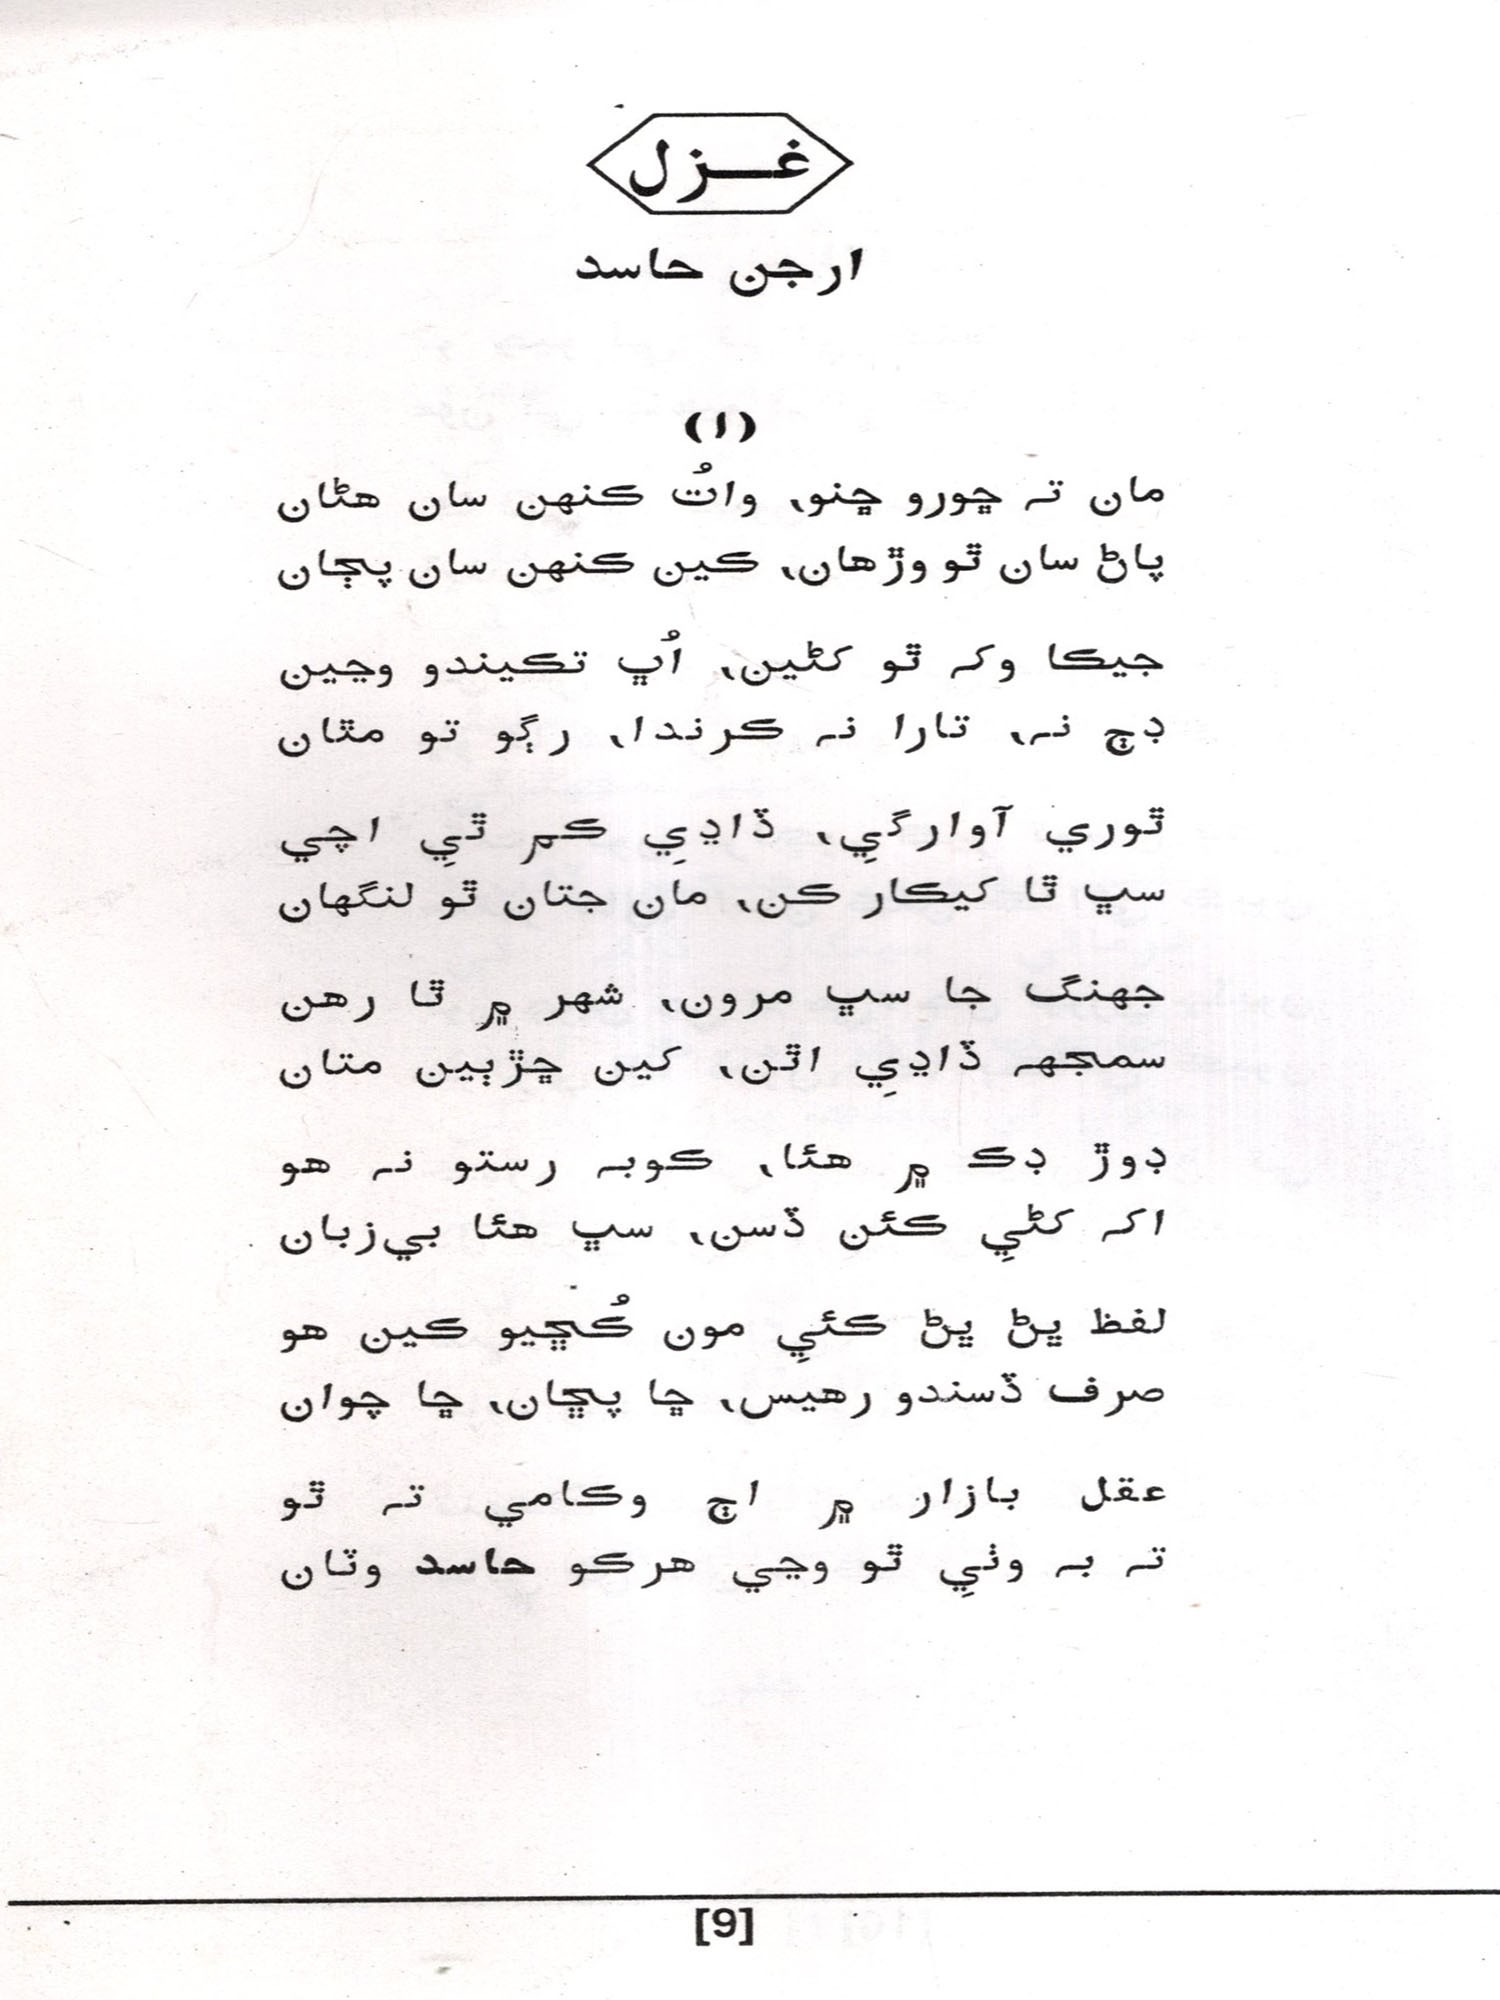 غزل
ارجن حاسد
(۱)
مان تہ ڇورو ڇنو، واتُ ڪنهن سان هڻان
پاڻ سان ٿو وڙهان، ڪين ڪنهن سان پڄان
جيڪا وکہ ٿو کڻين، اُڀ تڪيندو وڃين
ڊڄ نہ، تارا نہ ڪرندا، رڳو تو مٿان
ٿوري آوارگيِ، ڏاڍيِ ڪم ٿيِ اچي
سڀ ٿا کيڪار ڪن، مان جتان ٿو لنگهان
جهنگ جا سڀ مرون، شهر ۾ ٿا رهن
سمجهہ ڏاڍيِ اٿن، کين ڇڙٻين متان
ڊوڙ ڊڪ ۾ هئا، ڪوبہ رستو نہ هو
اکہ کڻيِ ڪئن ڏسن، سڀ هئا بي‌زبان
لفظ ڀڻ ڀڻ ڪئيِ مون ڪُڇيو ڪين هو
صرف ڏسندو رهيس، ڇا پڇان، ڇا چوان
عقل بازار ۾ اڄ وڪامي تہ ٿو
تہ بہ وٺيِ ٿو وڃي هرڪو حاسد وٽان
[9]